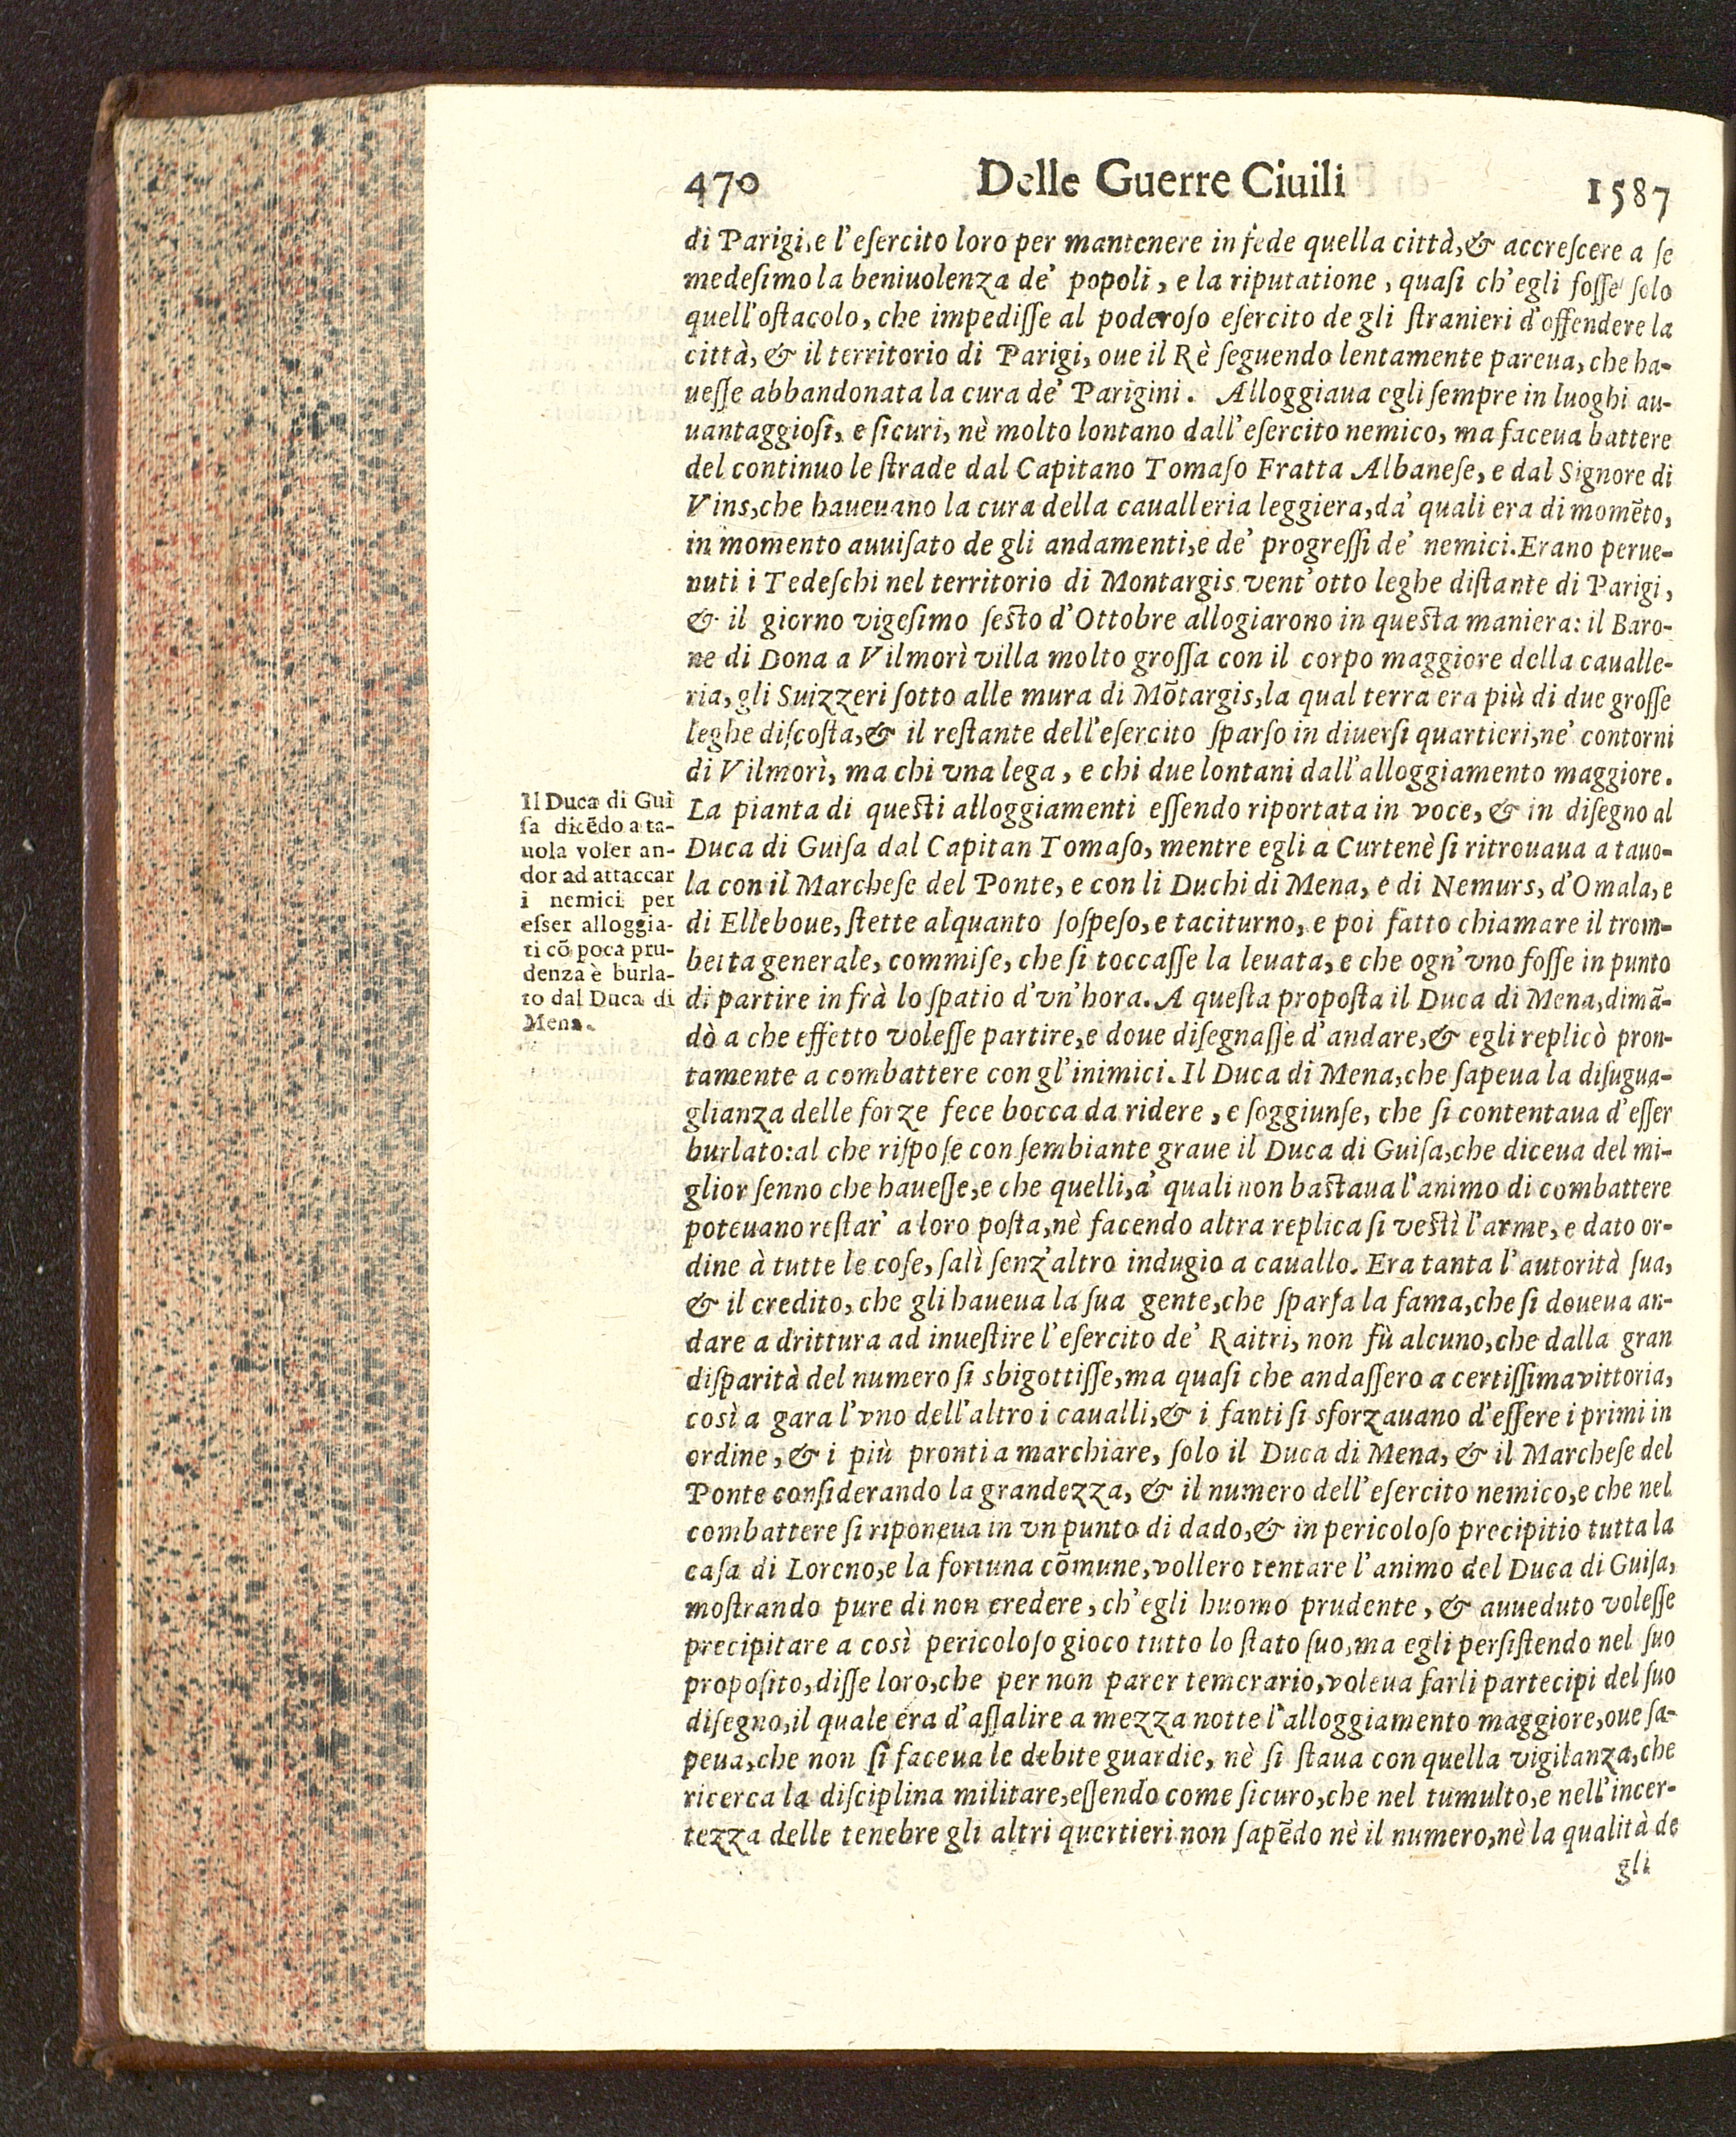 470 Delle Guerre Ciuili 1587
di Parigi, e l'eſercito loro per mantenere in fede quella città, & accreſcere a ſe
medeſimo la beniuolenza de' popoli, e la riputatione, quaſi ch'egli foſſe ſolo
quell'oſtacolo, che impediſſe al poderoſo eſercito de gli ſtranieri d'offendere la
città, & il territorio di Parigi, oue il Rè ſeguendo lentamente pareua, che ha-
ueſſe abbandonata la cura de' Parigini. Alloggiaua egli ſempre in luoghi au-
uantaggioſi, e ſicuri, nè molto lontano dall'eſercito nemico, ma faceua battere
del continuo le ſtrade dal Capitano Tomaſo Fratta Albaneſe, e dal Signore di
Vins, che haueuano la cura della caualleria leggiera, da' quali era di momẽto,
in momento auuiſato de gli andamenti, e de' progreſſi de' nemici. Erano perue-
nuti i Tedeſchi nel territorio di Montargis vent'otto leghe diſtante di Parigi,
& il giorno vigeſimo ſeſto d'Ottobre allogiarono in queſta maniera: il Baro-
ne di Dona a Vilmorì villa molto groſſa con il corpo maggiore della caualle-
ria, gli Suizzeri ſotto alle mura di Mõtargis, la qual terra era più di due groſſe
leghe diſcoſta, & il reſtante dell'eſercito ſparſo in diuerſi quartieri, ne' contorni
di Vilmorì, ma chi vna lega, e chi due lontani dall'alloggiamento maggiore.
La pianta di queſti alloggiamenti eſſendo riportata in voce, & in diſegno al
Duca di Guiſa dal Capitan Tomaſo, mentre egli a Curtenè ſi ritrouaua a tauo-
la con il Marcheſe del Ponte, e con li Duchi di Mena, e di Nemurs, d'Omala, e
di Elleboue, ſtette alquanto ſoſpeſo, e taciturno, e poi fatto chiamare il trom-
betta generale, commiſe, che ſi toccaſſe la leuata, e che ogn'vno foſſe in punto
di partire in frà lo ſpatio d'vn'hora. A queſta propoſta il Duca di Mena, dimã-
dò a che effetto voleſſe partire, e doue diſegnaſſe d'andare, & egli replicò pron-
tamente a combattere con gl'inimici. Il Duca di Mena, che ſapeua la diſugua-
glianza delle forze fece bocca da ridere, e ſoggiunſe, che ſi contentaua d'eſſer
burlato: al che riſpoſe con ſembiante graue il Duca di Guiſa, che diceua del mi-
glior ſenno che haueſſe, e che quelli, a' quali non baſtaua l'animo di combattere
poteuano reſtar' a loro poſta, nè facendo altra replica ſi veſtì l'arme, e dato or-
dine à tutte le coſe, ſalì ſenz'altro indugio a cauallo. Era tanta l'autorità ſua,
& il credito, che gli haueua la ſua gente, che ſparſa la fama, che ſi doueua an-
dare a drittura ad inueſtire l'eſercito de' Raitri, non fù alcuno, che dalla gran
diſparità del numero ſi sbigottiſſe, ma quaſi che andaſſero a certiſſima vittoria,
così a gara l'vno dell'altro i caualli, & i fanti ſi sforzauano d'eſſere i primi in
ordine, & i più pronti a marchiare, ſolo il Duca di Mena, & il Marcheſe del
Ponte conſiderando la grandezza, & il numero dell'eſercito nemico, e che nel
combattere ſi riponeua in vn punto di dado, & in pericoloſo precipitio tutta la
caſa di Loreno, e la fortuna cõmune, vollero tentare l'animo del Duca di Guiſa,
moſtrando pure di non credere, ch'egli huomo prudente, & auueduto voleſſe
precipitare a così pericoloſo gioco tutto lo ſtato ſuo, ma egli perſiſtendo nel ſuo
propoſito, diſſe loro, che per non parer temerario, voleua farli partecipi del ſuo
diſegno, il quale era d'aſſalire a mezza notte l'alloggiamento maggiore, oue ſa-
peua, che non ſi faceua le debite guardie, nè ſi ſtaua con quella vigilanza, che
ricerca la diſciplina militare, eſſendo come ſicuro, che nel tumulto, e nell'incer-
tezza delle tenebre gli altri quertieri non ſapẽdo nè il numero, nè la qualità de
gli
Il Duca di Gui
ſa dicẽdo a ta-
uola voler an-
dor ad attaccar
i nemici per
eſſer alloggia-
ti cõ poca pru-
denza è burla-
to dal Duca di
Mena.